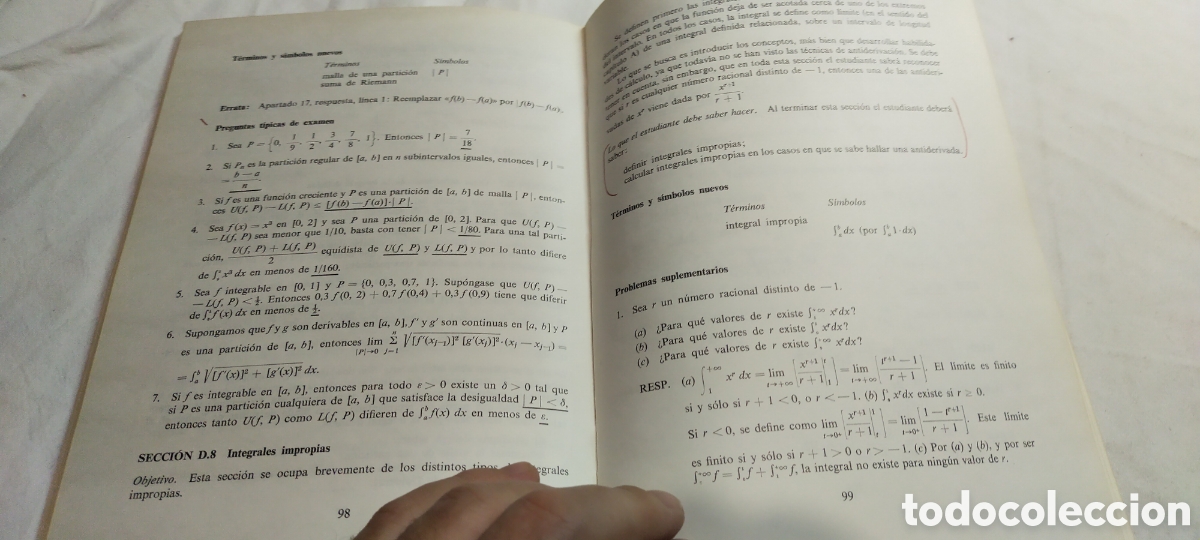 Términos y símbolos nuevos
Términos Símbolos
malla de una partición | P |
suma de Riemann
Errata: Apartado 17, respuesta, línea 1: Reemplazar «f(b) — f(a)» por |f(b) — f(a)|.
Preguntas típicas de examen
1. Sea P = {0, 1/9, 1/2, 3/4, 7/8, 1}. Entonces | P | = 7/18.
2. Si Pₙ es la partición regular de [a, b] en n subintervalos iguales, entonces | P | =
= b — a / n.
3. Si f es una función creciente y P es una partición de [a, b] de malla | P |, enton-
ces U(f, P) — L(f, P) ≤ [f(b) — f(a)]·| P |.
4. Sea f(x) = x³ en [0, 2] y sea P una partición de [0, 2]. Para que U(f, P) —
— L(f, P) sea menor que 1/10, basta con tener | P | < 1/80. Para una tal parti-
ción, U(f, P) + L(f, P) / 2 equidista de U(f, P) y L(f, P) y por lo tanto difiere
de ∫ x³ dx en menos de 1/160.
5. Sea f integrable en [0, 1] y P = {0, 0,3, 0,7, 1}. Supóngase que U(f, P) —
— L(f, P) < Entonces 0,3 f(0, 2) + 0,7 f(0,4) + 0,3 f(0,9) tiene que diferir
de ∫ f(x) dx en menos de
6. Supongamos que f y g son derivables en [a, b], f′ y g′ son continuas en [a, b] y P
es una partición de [a, b], entonces lim |P|→0 Σ j=1 n √[f′(xⱼ₋₁)]² [g′(xⱼ)]²·(xⱼ — xⱼ₋₁) =
= ∫ₐᵇ √[f′(x)]² + [g′(x)]² dx.
7. Si f es integrable en [a, b], entonces para todo ε > 0 existe un δ > 0 tal que
si P es una partición cualquiera de [a, b] que satisface la desigualdad | P | < δ,
entonces tanto U(f, P) como L(f, P) difieren de ∫ₐᵇ f(x) dx en menos de ε.
SECCIÓN D.8 Integrales impropias
Objetivo. Esta sección se ocupa brevemente de los distintos tipos de integrales
impropias.
98
Se definen primero las integrales
los casos en que la función deja de ser acotada cerca de uno de los extremos
del intervalo. En todos los casos, la integral se define como límite (en el sentido del
capítulo A) de una integral definida relacionada, sobre un intervalo de longitud
variable.
Lo que se busca es introducir los conceptos, más bien que desarrollar habilida-
des de cálculo, ya que todavía no se han visto las técnicas de antiderivación. Se debe
tener en cuenta, sin embargo, que en toda esta sección el estudiante sabrá reconocer
que si r es cualquier número racional distinto de —1, entonces una de las antideri-
vadas de xʳ viene dada por xʳ⁺¹ / r + 1.
Lo que el estudiante debe saber hacer. Al terminar esta sección el estudiante deberá
saber:
definir integrales impropias;
calcular integrales impropias en los casos en que se sabe hallar una antiderivada.
Términos y símbolos nuevos
Términos Símbolos
integral impropia ∫ₐᵇ dx (por ∫ₐᵇ 1·dx)
Problemas suplementarios
1. Sea r un número racional distinto de —1.
(a) ¿Para qué valores de r existe ∫₁⁺∞ xʳdx?
(b) ¿Para qué valores de r existe ∫ xʳdx?
(c) ¿Para qué valores de r existe ∫ xʳdx?
RESP. (a) ∫₁⁺∞ xʳ dx = lim t→+∞ [xʳ⁺¹ / r + 1 |₁ᵗ] = lim t→+∞ [tʳ⁺¹ — 1 / r + 1]. El límite es finito
si y sólo si r + 1 < 0, o r < —1. (b) ∫ xʳdx existe si r ≥ 0.
Si r < 0, se define como lim t→0⁺ [xʳ⁺¹ / r + 1 |ₜ¹] = lim t→0⁺ [1 — tʳ⁺¹ / r + 1]. Este límite
es finito si y sólo si r + 1 > 0 o r > —1. (c) Por (a) y (b), y por ser
∫ f = ∫ f + ∫ f, la integral no existe para ningún valor de r.
99
todocoleccion